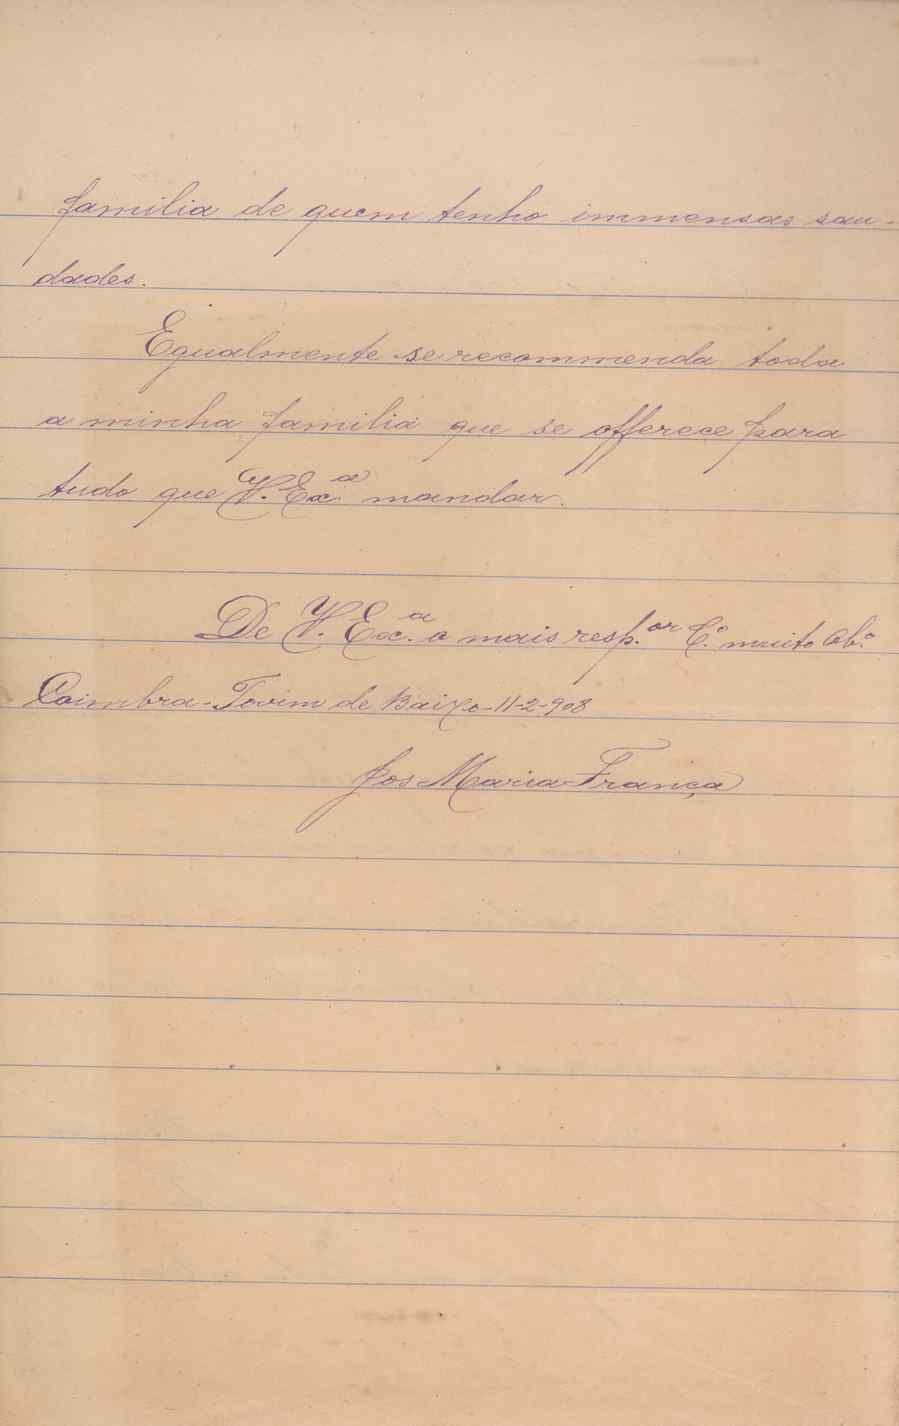 familia de quem tenho immensas sau-
dades.
Egualmente se recommenda toda
a minha familia que se offerece para
tudo que V. Ex.ª mandar.
De V. Ex.ª o mais resp.or C.º muito Ob.º
Coimbra - Tovim de Baixo - 11-2-908
Jos Maria França